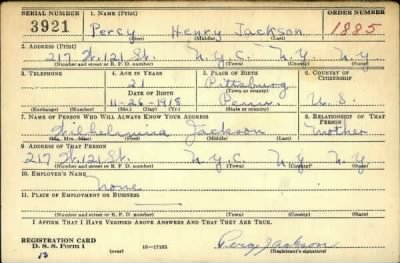 SERIAL NUMBER 1. NAME (Print) ORDER NUMBER
3921 Percy Henry Jackson 1885
(First) (Middle) (Last)
2. ADDRESS (Print)
217 W. 121 St. N.Y.C. N.Y. N.Y.
(Number and street or R. F. D. number) (Town) (County) (State)
3. TELEPHONE 4. AGE IN YEARS 5. PLACE OF BIRTH 6. COUNTRY OF CITIZENSHIP
21 Pittsburg
DATE OF BIRTH (Town or county)
11-26-1918 Penn. U.S.
(Exchange) (Number) (Mo.) (Day) (Yr.) (State or country)
7. NAME OF PERSON WHO WILL ALWAYS KNOW YOUR ADDRESS 8. RELATIONSHIP OF THAT PERSON
Wilhelmina Jackson Mother
(Mr., Mrs., Miss) (First) (Middle) (Last)
9. ADDRESS OF THAT PERSON
217 W. 121 St. N.Y.C. N.Y. N.Y.
(Number and street or R. F. D. number) (Town) (County) (State)
10. EMPLOYER'S NAME
None
11. PLACE OF EMPLOYMENT OR BUSINESS
(Number and street or R. F. D. number) (Town) (County) (State)
I AFFIRM THAT I HAVE VERIFIED ABOVE ANSWERS AND THAT THEY ARE TRUE.
REGISTRATION CARD
D. S. S. Form 1 (over) 16-17105 Percy Jackson
13 (Registrant's signature)